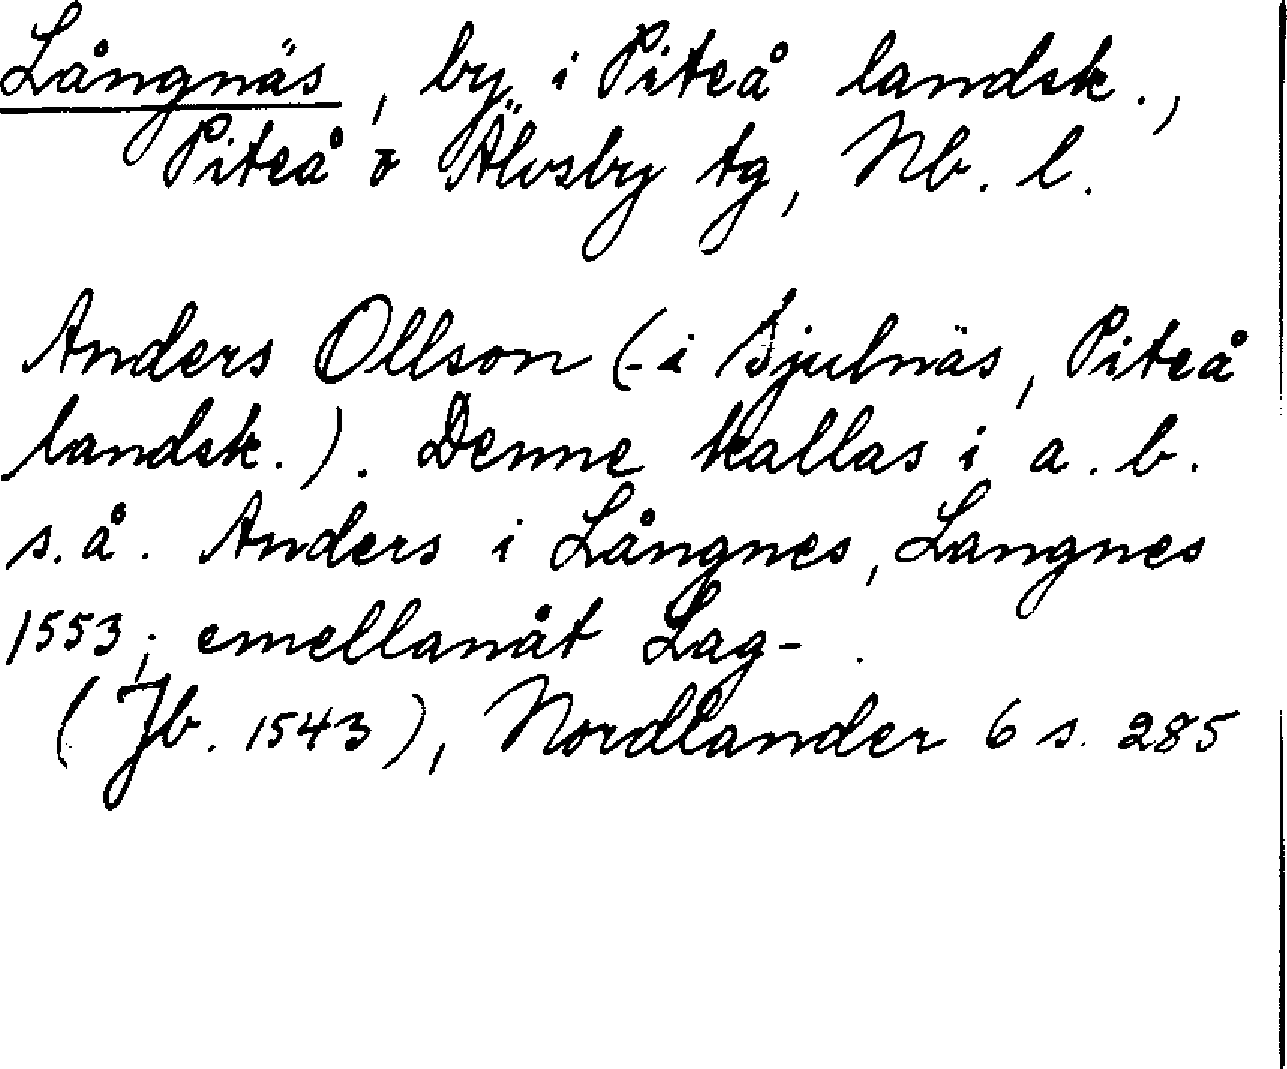 Långnäs, by i Piteå landsk.,
Piteå o Älvsby tg, Nb. l.
Anders Ollson (- i Sjulnäs, Piteå
landsk.). Denne kallas i a. b.
s. å. Anders i Långnes, Langnes
1553; emellanåt Lag- .
(Jb. 1543), Nordlander 6 s. 285